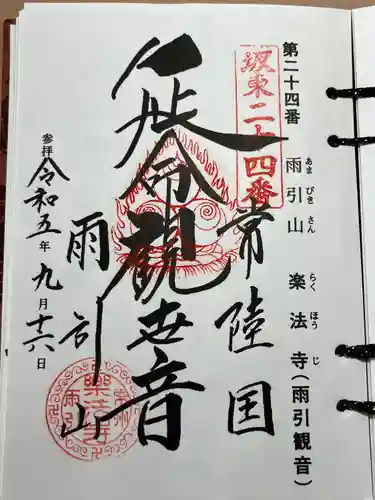 第二十四番 雨引山 楽法寺(雨引観音)
あまびきさん
らくほうじ
坂東二十四番
常陸国
延命観世音
雨引山
参拝 令和五年九月十六日